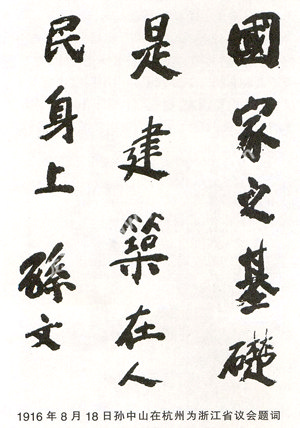 國家之基礎
是建築在人
民身上 孫文
1916年8月18日孙中山在杭州为浙江省议会题词